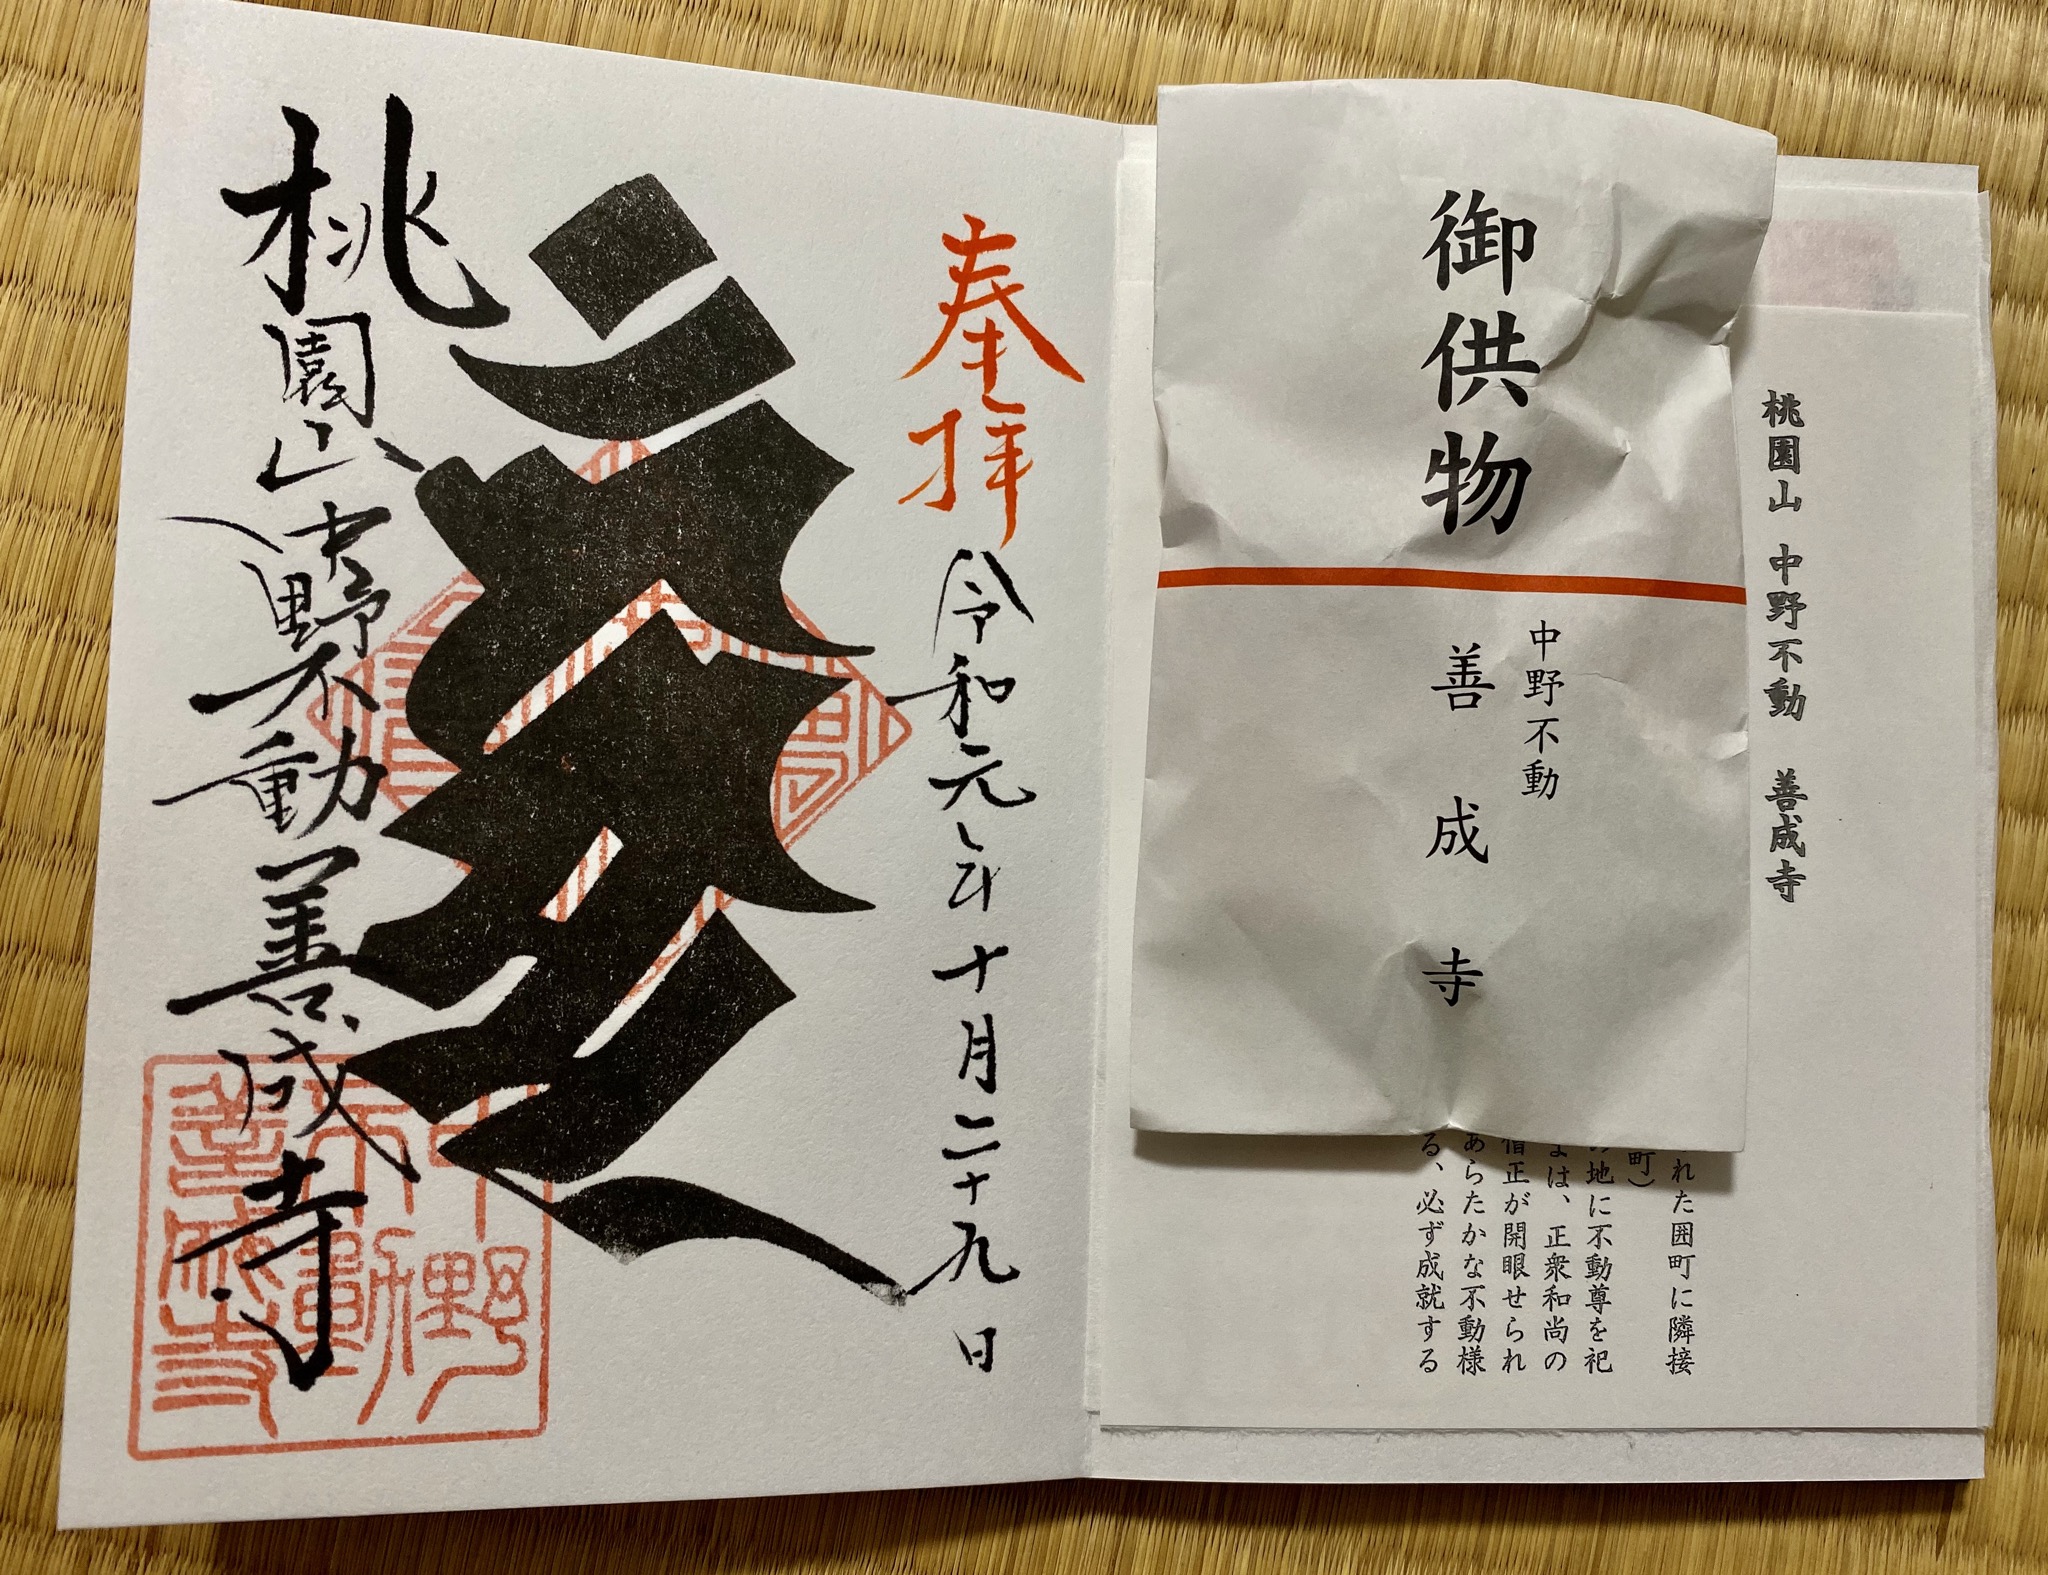 桃園山 中野不動 善成寺
れた囲町に隣接
町）
の地に不動尊を祀
は、正衆和尚の
僧正が開眼せられ
あらたかな不動様
る、必ず成就する
御供物
中野不動
善成寺
奉拝
令和元年十月二十九日
桃園山中野不動善成寺
中野
不動
善成寺